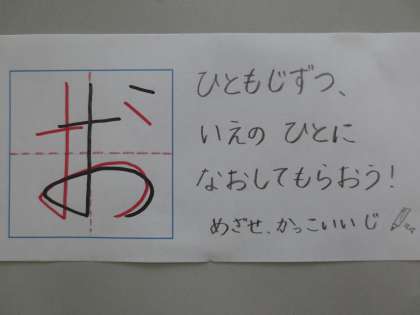 お
ひともじずつ、
いえの ひとに
なおしてもらおう!
めざせ、かっこいい じ